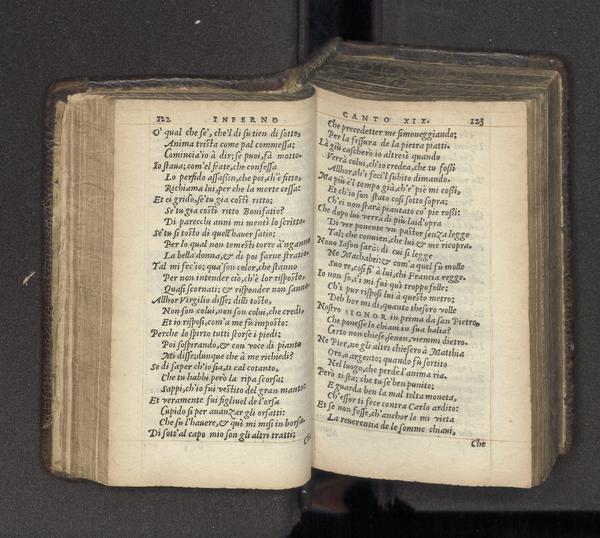 122 INFERNO
O' qual che se', che'l di su tien di sotto,
Anima trista come pal commessa;
Comincia'io à dir; se puoi, fà motto.
Io staua; com'el frate, che confessa
Lo perfido assassin, che poi, ch'è fitto,
Richiama lui, per che la morte cessa:
Et ei gridò, se'tu gia costi ritto;
Se'tu gia costi ritto Bonifatio?
Di parecchi anni mi mentì lo scritto.
Se'tu si tosto di quell'hauer satio;
Per lo qual non temesti torre à'nganno
La bella donna, & di poi farne stratio?
Tal mi fec'io; qua'son color, che stanno
Per non intender ciò, ch'è lor risposto,
Quasi scornati; & risponder non sanno.
Allhor Virgilio disse; dilli tosto,
Non son colui, non son colui, che credi,
Et io risposi, com'a me fù imposto:
Perche lo spirto tutti storse i piedi:
Poi sospirando, & con voce di pianto
Mi disse; dunque che à me richiedi?
Se di saper ch'io sia, ti cal cotanto,
Che tu habbi però la ripa scorsa;
Sappi, ch'io fui vestito del gran manto:
Et veramente fui figliuol de l'orsa
Cupido si per auanzar gli orsatti:
Che su l'hauere, & quì mi misi in borsa.
Di sott'al capo mio son gli altri tratti;
Che
CANTO XIX. 123
Che precedetter me simoneggiando;
Per la fessura de la pietra piatti.
Là giù cascherò io altresi quando
Verrà colui, ch'io credea, che tu fossi
Allhor, ch'i feci'l subito dimando.
Ma più è'l tempo già, ch'e' piè mi cossi,
Et ch'io son stato cosi sotto sopra;
Ch'ei non starà piantato co' pie rossi:
Che dopo lui verrà di più laid'opra
Di ver ponente vn pastor senza legge
Tal; che conuien, che lui & me ricopra.
Nouo Iason sarà; di cui si legge
Ne Machabei: & com'a quel fù molle
Suo re, cosi fi' à lui, chi Francia regge.
Io non so, s'i mi fui quì troppo folle:
Ch'i pur risposi lui à questo metro:
Deh hor mi di, quanto thesoro volle
Nostro SIGNOR in prima da san Pietro,
Che ponesse le chiaui in sua balia?
Certo non chiese, senon, viemmi dietro.
Ne Pier, ne gli altri chiesero à Matthia
Oro, o argento; quando fù sortito
Nel luogo, che perdè l'anima ria.
Però ti sta; che tu se'ben punito;
E guarda ben la mal tolta moneta,
Ch'esser ti fece contra Carlo ardito:
Et se non fosse, ch'anchor lo mi vieta
La reuerentia de le somme chiaui,
Che